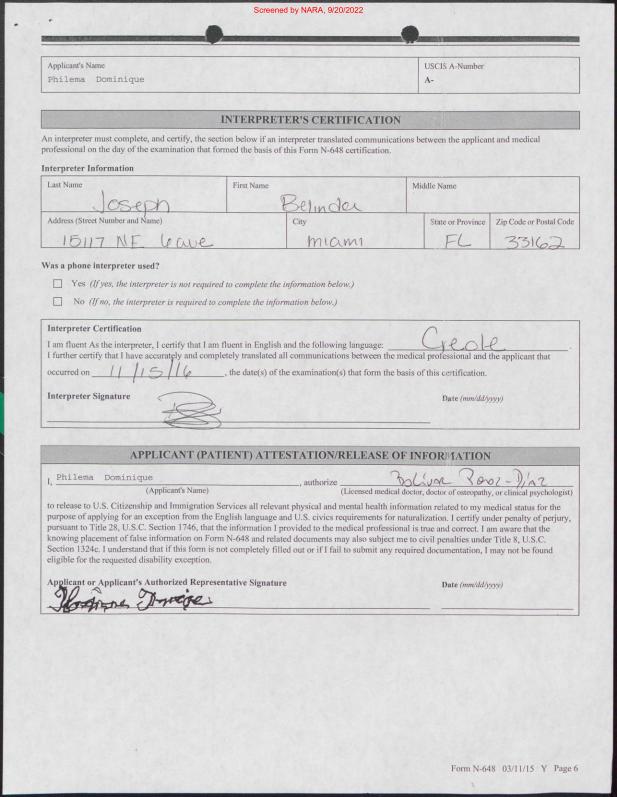 Screened by NARA, 9/20/2022
Applicant's Name
USCIS A-Number
Philema Dominique
A-
INTERPRETER'S CERTIFICATION
An interpreter must complete, and certify, the section below if an interpreter translated communications between the applicant and medical
professional on the day of the examination that formed the basis of this Form N-648 certification.
Interpreter Information
Last Name
First Name
Middle Name
Joseph
Belinda
Address (Street Number and Name)
City
State or Province
Zip Code or Postal Code
15117 NE 6 ave
miami
FL
33162
Was a phone interpreter used?
Yes (If yes, the interpreter is not required to complete the information below.)
No (If no, the interpreter is required to complete the information below.)
Interpreter Certification
I am fluent As the interpreter, I certify that I am fluent in English and the following language: Creole.
I further certify that I have accurately and completely translated all communications between the medical professional and the applicant that
occurred on 11/15/16, the date(s) of the examination(s) that form the basis of this certification.
Interpreter Signature
Date (mm/dd/yyyy)
APPLICANT (PATIENT) ATTESTATION/RELEASE OF INFORMATION
I, Philema Dominique, authorize Bolivar
(Applicant's Name)
(Licensed medical doctor, doctor of osteopathy, or clinical psychologist)
to release to U.S. Citizenship and Immigration Services all relevant physical and mental health information related to my medical status for the
purpose of applying for an exception from the English language and U.S. civics requirements for naturalization. I certify under penalty of perjury,
pursuant to Title 28, U.S.C. Section 1746, that the information I provided to the medical professional is true and correct. I am aware that the
knowing placement of false information on Form N-648 and related documents may also subject me to civil penalties under Title 8, U.S.C.
Section 1324c. I understand that if this form is not completely filled out or if I fail to submit any required documentation, I may not be found
eligible for the requested disability exception.
Applicant or Applicant's Authorized Representative Signature
Date (mm/dd/yyyy)
Form N-648 03/11/15 Y Page 6